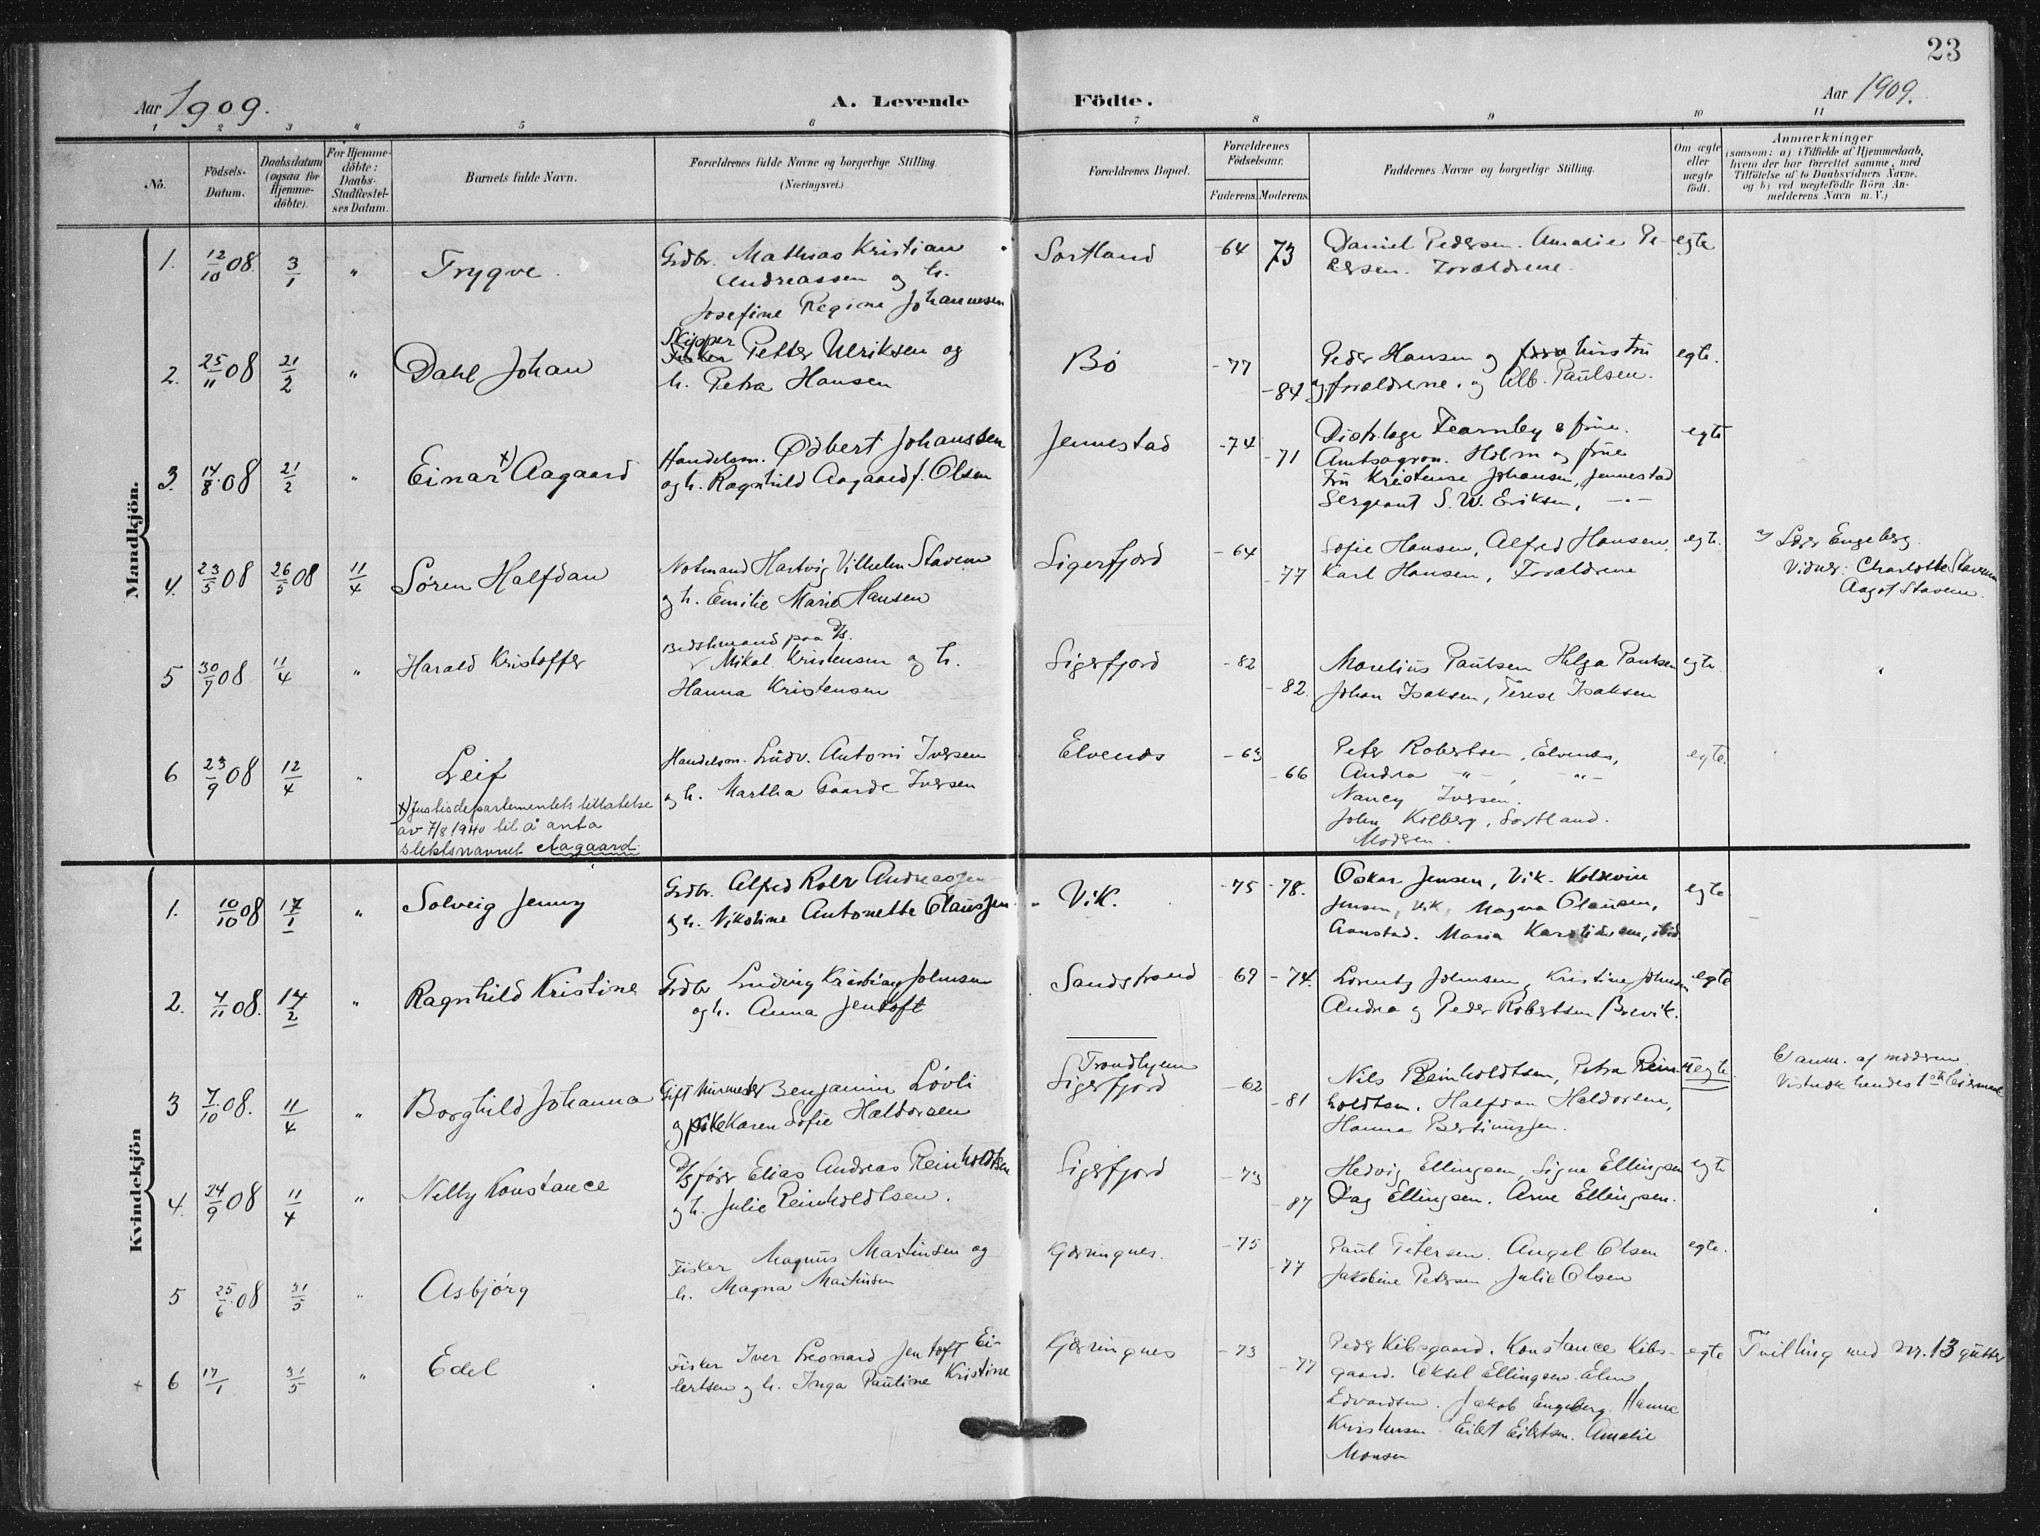 23
Aar 1909. A. Levende Födte. Aar 1909.
1 2 3 4 5 6 7 8 9 10 11
No.
Födsels-
Datum.
Daabsdatum
(ogsaa for
Hjemme-
döbte).
For Hjemme-
döbte:
Daabs-
Stadfæstel-
ses Datum.
Barnets fulde Navn.
Forældrenes fulde Navne og borgerlige Stilling.
(Næringsvei.)
Forældrenes Bopæl.
Forældrenes
Födselsaar.
Faderens. Moderens.
Faddernes Navne og borgerlige Stilling.
Om ægte
eller
uægte
født.
Anmærkninger
(saasom: a) i Tilfælde af Hjemmedaab,
hvem der har forrettet samme, med
Tilföielse af to Daabsvidners Navne,
og b) ved uægtefödte Börn An-
melderens Navn m.V.)
Mandkjön.
1. 12/10 08. 3/1 " Trygve.
Grdbr. Mathias Kristian
Andreassen og h.
Josefine Regine Johannesen
Sortland -64 73
Daniel Pedersen. Amalie Pe-
dersen. Forældrene.
egte
2. 25/11 08 21/2 " Dahl Johan
Skipper
Fisker Petter Ulriksen og
h. Petra Hansen
Bø -77 -84
Peder Hansen og hustru
og forældrene. og Alb. Paulsen.
egte.
3. 14/8 08 21/2 " Einar x) Aagaard
Handelsm. Ødbert Johanssen
og h. Ragnhild Aagaard f. Olsen
Jennestad -74 -71
Distr.læge Fearnley & frue.
Amtsagron. Holm og frue
Fru Kristense Johansen, Jennestad
Sergeant S. W. Eriksen, -"-
egte
4. 23/5 08 26/5 08 11/4 Søren Halfdan
Notmand Hartvig Vilhelm Stavem
og h. Emilie Marie Hansen
Sigerfjord -64 -77
Sofie Hansen, Alfred Hansen,
Karl Hansen, Forældrene
egte.
Lærer Engeberg.
Vidner: Charlotte Stavem
Aagot Stavem.
5 30/7 08 11/4 " Harald Kristoffer
Bedstemand paa D/S.
Mikal Kristensen og h.
Hanna Kristensen
Sigerfjord -82 -82.
Montius Paulsen Helga Paulsen
Johan Isaksen, Terese Isaksen
egte.
6 23/9 08 12/4 " Leif
Handelsm. Ludv. Antoni Iversen
og h. Martha Gaarde Iversen
Elvenes -63 -66
Peter Robertsen, Elvenes,
Andrea -"-, -"-
Nancy Iversen.
John Kolberg, Sortland.
Moderen.
egte.
x) Justisdepartementets tillatelse
av 7/8 1940 til å anta
slektsnavnet Aagaard.
Kvindekjön
1. 10/10 08 17/1 " Solveig Jenny
Grdbr. Alfred Rolr Andreassen
og h. Nikoline Antonette Claussen.
Vik. -75 -78.
Oskar Jensen, Vik. Koldevin
Jensen, Vik, Magna Clausen,
Aanstad. Maria Karoliussen, ibid
egte
2. 4/11 08. 14/2 " Ragnhild Kristine
Grdbr Ludvig Kristian Johnsen
og h. Anna Jentoft
Sandstrand -69 -74.
Lorentz Johnsen, Kristine Johnsen
Andrea og Peder Robertsen Brevik.
egte
3 7/10 08. 11/4 Borghild Johanna
Gift Murmester Benjamin Løvli
og pike Karen Sofie Haldorsen
Trondhjem
Sigerfjord -62 -81
Nils Reinholdtsen, Petra Rein-
holdtsen. Halfdan Haldorsen,
Hanna Bertinussen.
uegte.
Vistnok hendes 1ste leiermaal
4. 24/9 08 11/4 " Nelly Konstance
D/S fører Elias Andreas Reinholdtsen
og h. Julie Reinholdtsen.
Sigerfjord -73 -87
Hedvig Ellingsen, Signe Ellingsen
Dag Ellingsen. Arne Ellingsen.
egte
5 25/6 08 31/5 " Asbjørg
Fisker Magnus Martinsen og
h. Magna Martinsen
Gjæringnes. -75 -77
Paul Petersen. Angel Olsen
Jakobine Petersen. Julie Olsen
egte.
x 6 17/1 31/5 " Edel
Fisker Iver Leonard Jentoft Ei-
lertsen og h. Inga Pauline Kristine
Gjæringnes -73 -77
Peder Kibsgaard. Konstance Kibs-
gaard. Eksel Ellingsen. Elen
Edvardsen. Jakob Engeberg. Hanna
Kristensen. Eilert Eilertsen. Amalie
Monsen
egte
Tvilling med nr. 13 gutter